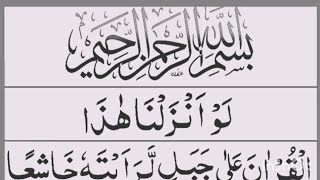 بِسْمِ اللّٰهِ الرَّحْمٰنِ الرَّحِيْمِ
لَوْ اَنْزَلْنَا هٰذَا
الْقُرْاٰنَ عَلٰى جَبَلٍ لَّرَاَيْتَهٗ خَاشِعًا